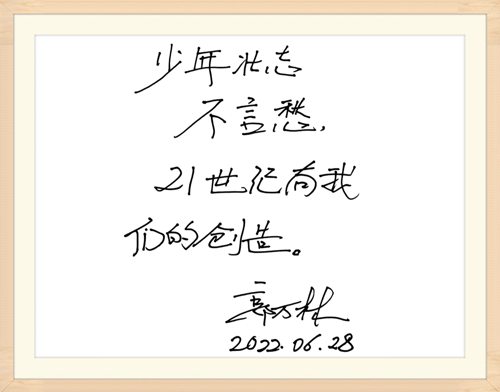 少年壮志
不言愁,
21世纪有我
们的创造。
2022.06.28